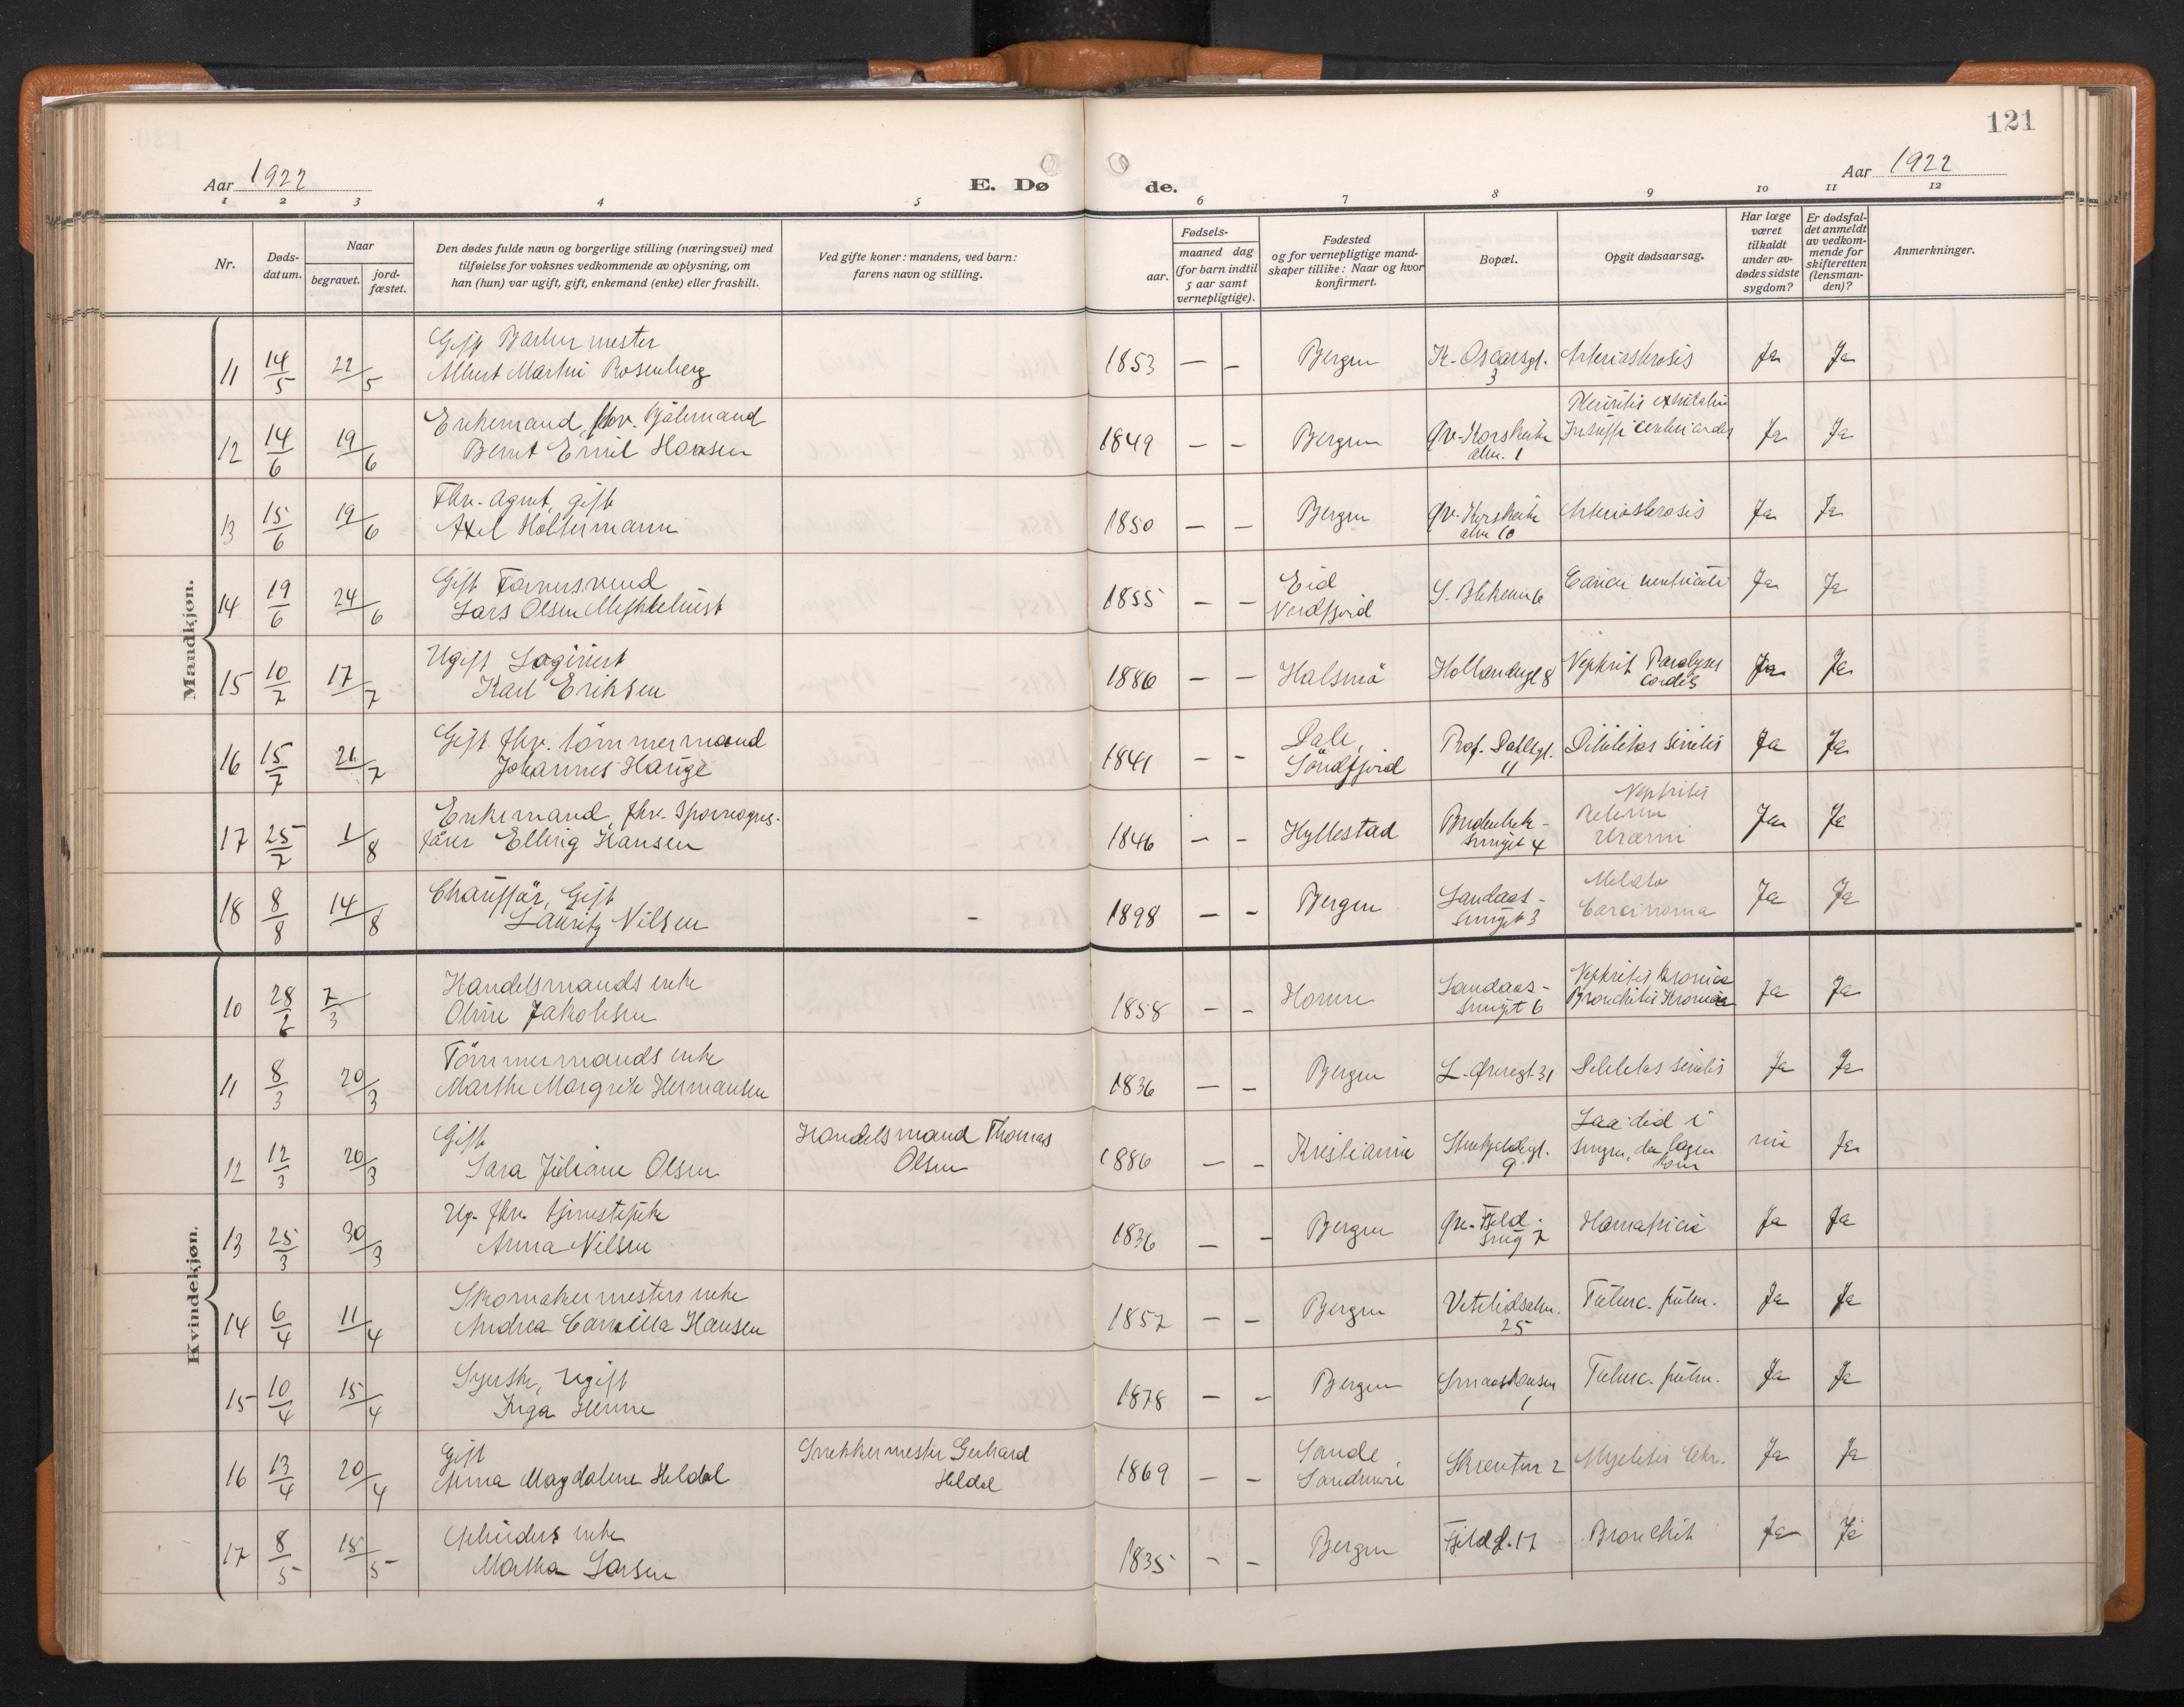 121
Aar 1922
E. Dø de.
Aar 1922
1 2 3 4 5 6 7 8 9 10 11 12
Nr.
Døds-
datum.
Naar
begravet.
jord-
fæstet.
Den dødes fulde navn og borgerlige stilling (næringsvei) med
tilføielse for voksnes vedkommende av oplysning, om
han (hun) var ugift, gift, enkemand (enke) eller fraskilt.
Ved gifte koner: mandens, ved barn:
farens navn og stilling.
Fødsels-
aar.
maaned dag
(for barn indtil
5 aar samt
vernepligtige).
Fødested
og for vernepligtige mand-
skaper tillike: Naar og hvor
konfirmert.
Bopæl.
Opgit dødsaarsag.
Har læge
været
tilkaldt
under av-
dødes sidste
sygdom?
Er dødsfal-
det anmeldt
av vedkom-
mende for
skifteretten
(lensman-
den)?
Anmerkninger.
Mandkjøn.
11 14/5 22/5 Gift Barber mester
Albert Martin Rosenberg 1853 — — Bergen K. Oscarsgt. 3 Arteriosklerosis Ja Ja
12 14/6 19/6 Enkemand, fhv.
Bernt Emil Hansen 1849 — — Bergen Øv-Korskirke alm. 1 Ja Ja
13 15/6 19/6 Fhv. Agent, gift
Axel Holtermann 1850 — — Bergen Øv-Korskirke alm 10 Arteriosklerosis Ja Ja
14 19/6 24/6 Gift
Lars Olsen Myklebust 1855 — — Eid Nordfjord 6 Cancer ventriculi Ja Ja
15 10/7 17/7 Ugift Logirient
Karl Eriksen 1886 — — Halsnö Hollendergt 8 Nephrit Paralysis cordis Ja Ja
16 15/7 21/7 Gift fhv. tömmermand
Johannes Hauge 1841 — — Dale, Söndfjord Prof. Dahlsgt. 11 Debilitas senilis Ja Ja
17 25/7 1/8 Enkemand, fhv. Sporvogns-
förer Elling Hansen 1846 — — Hyllestad smuget 4 Nephritis Uræmi Ja Ja
18 8/8 14/8 Chaufför, Gift
Lauritz Nilsen - 1898 — — Bergen Landaas-
smuget 3 Carcinoma Ja Ja
Kvindekjøn.
10 28/2 7/3 Handelsmands enke
Oline Jakobsen 1858 — — Landaas-
smuget 6 Nephritis kronica
Bronchitis kronica Ja Ja
11 8/3 20/3 Tömmermands enke
Marthe Margrete Hermansen 1836 — — Bergen L. Øvregt. 31 Debilitas senilis Ja Ja
12 12/3 20/3 Gift
Sara Juliane Olsen Handelsmand Thomas
Olsen 1886 — — Kristiania 9 Laa död i
sengen, da lægen
kom nei Ja
13 25/3 30/3 Ug. fhv. tjenestepike
Anna Nilsen 1836 — — Bergen Øv. Fjeld-
smug 2 Ja Ja
14 6/4 11/4 Skomakermesters enke
Andrea Camilla Hansen 1857 — — Bergen Vetrlidsalm.
25 Tuberc. pulm. Ja Ja
15 10/4 15/4 Syerske, ugift
Inga 1878 — — Bergen 1 Tuberc. pulm. Ja Ja
16 13/4 20/4 Gift
Anna Magdalene Heldal Snekkermester Gerhard
Heldal 1869 — — Sande
Söndmöre Skrenten 2 Myelitis Chr. Ja Ja
17 8/5 15/5 enke
Martha Larsen 1835 — — Bergen Fjeldg. 17 Bronchit Ja Ja